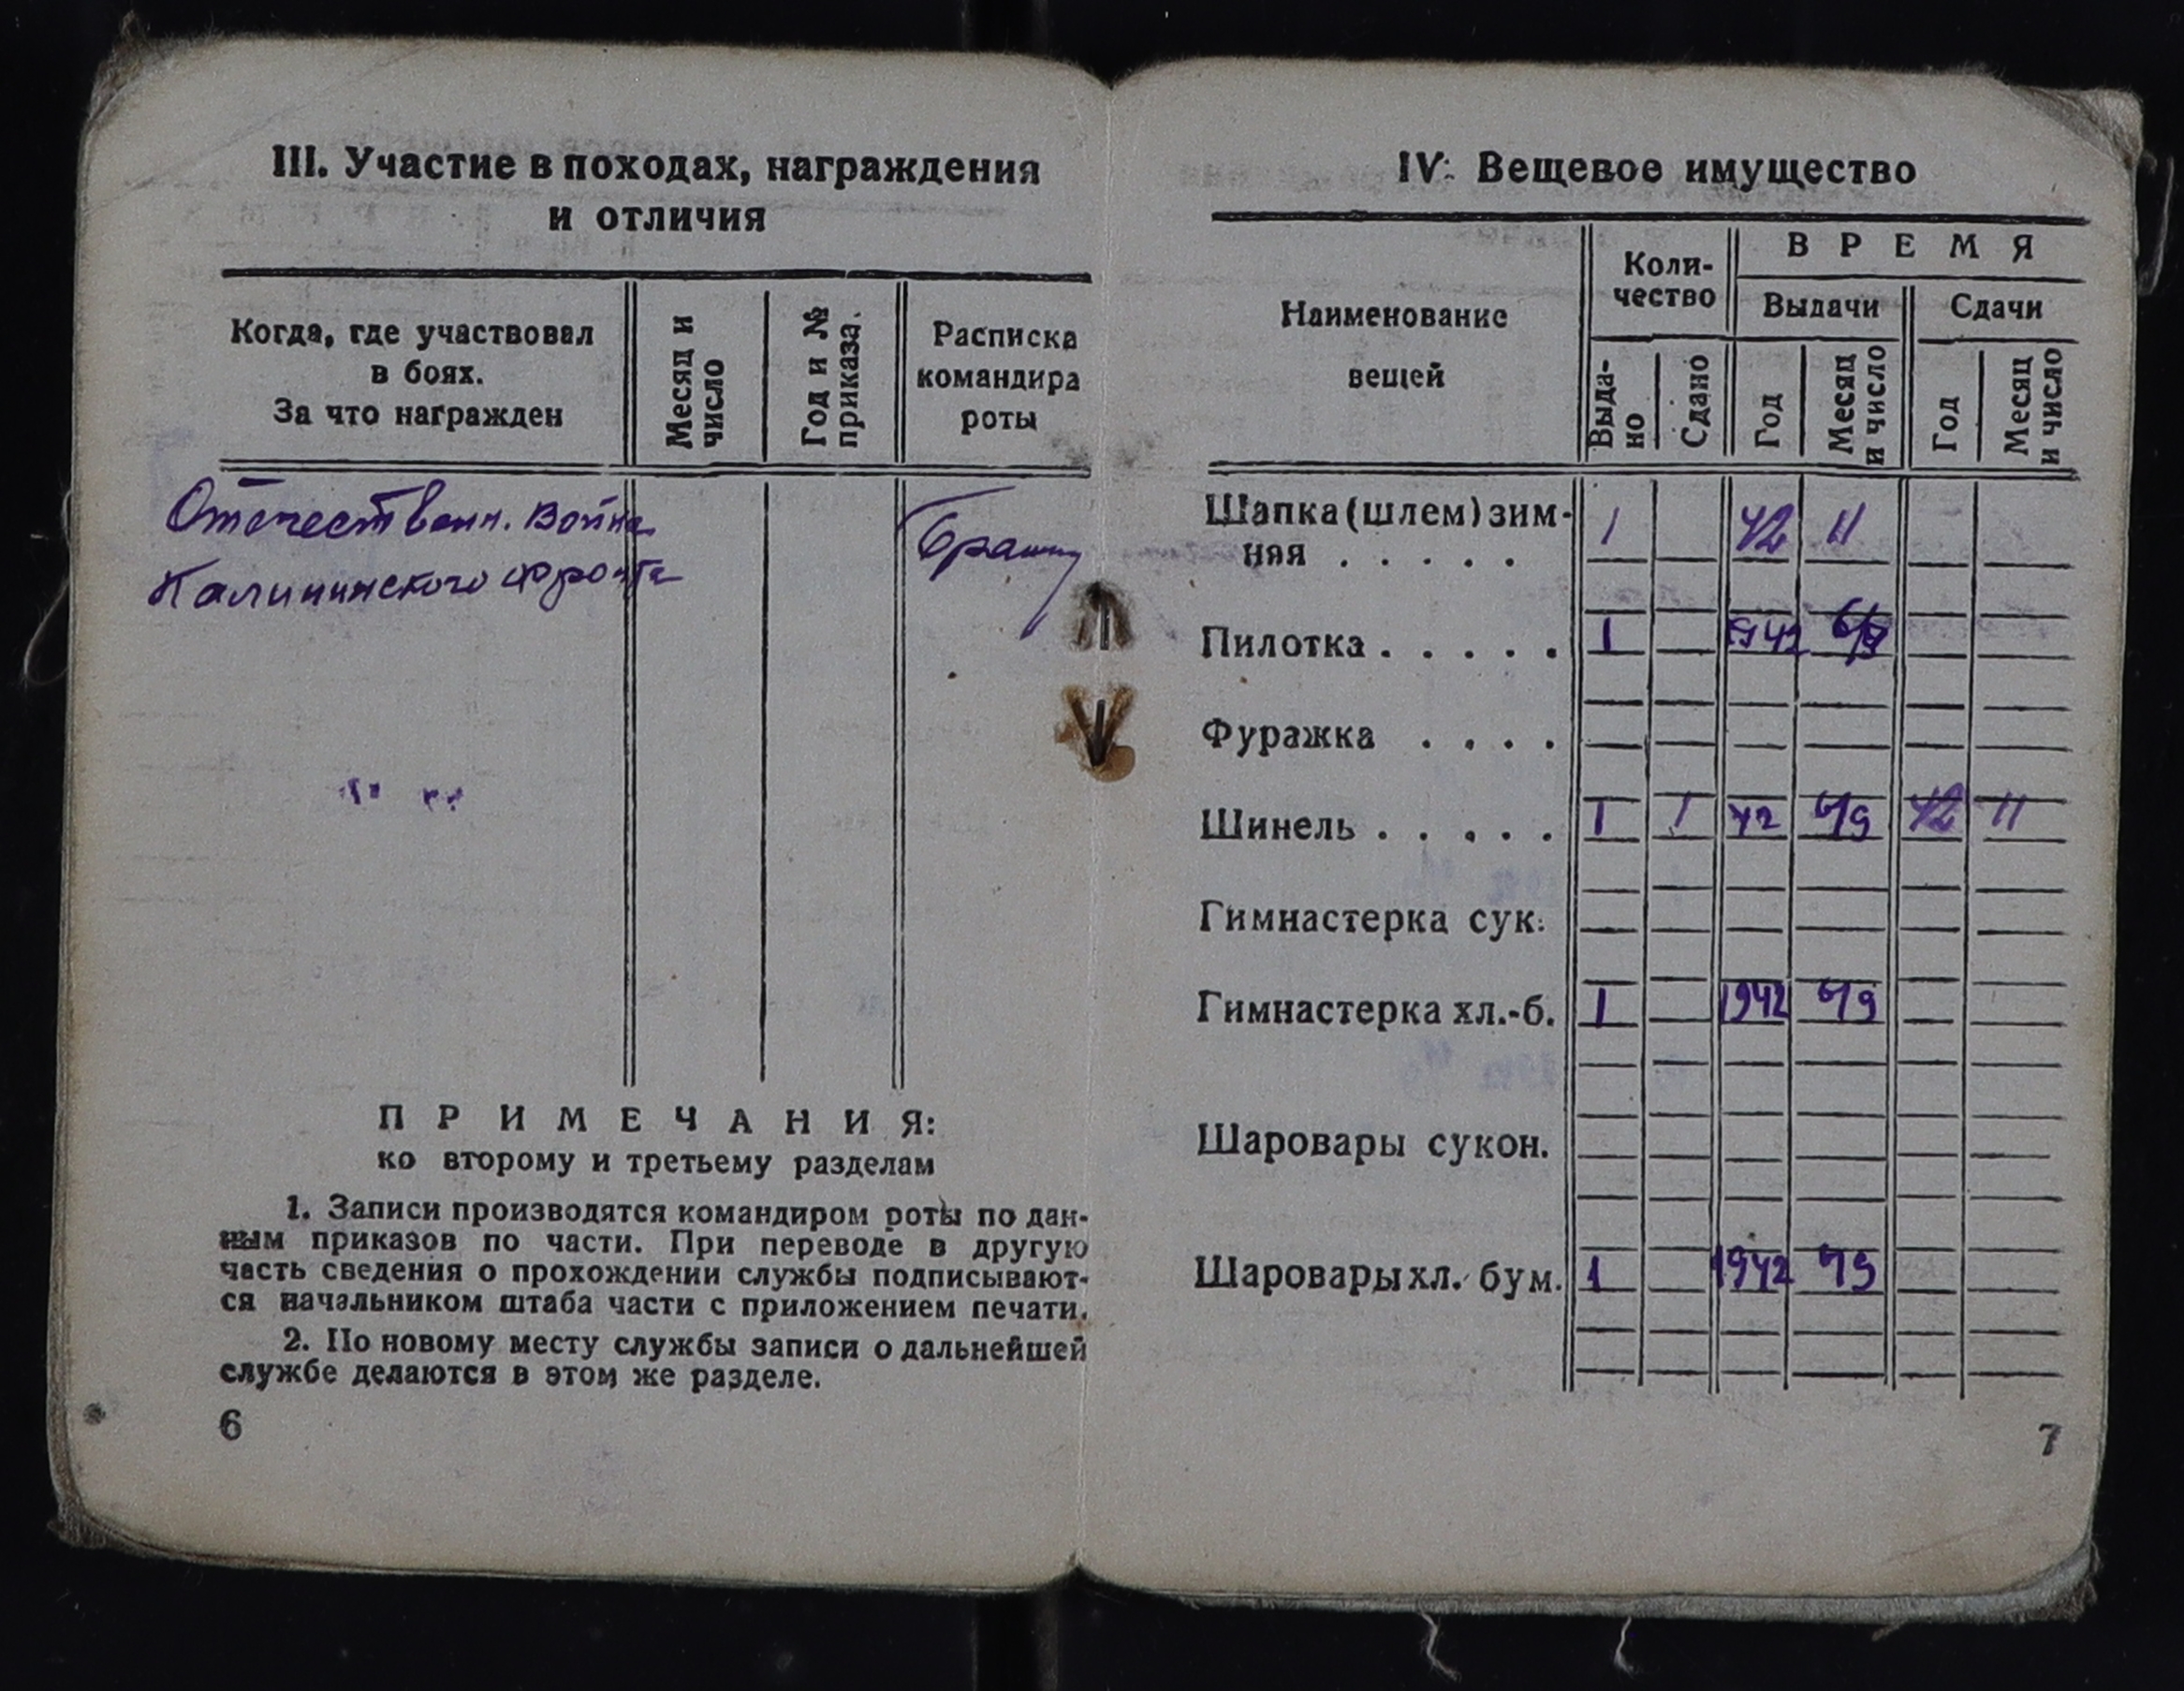 III. Участие в походах, награждения
и отличия
Когда, где участвовал
в боях.
За что награжден
Месяц и
число
Год и №
приказа.
Расписка
командира
роты
Отечественн. Война
Калининского фронта
П Р И М Е Ч А Н И Я:
ко второму и третьему разделам
1. Записи производятся командиром роты по дан-
ным приказов по части. При переводе в другую
часть сведения о прохождении службы подписывают-
ся начальником штаба части с приложением печати.
2. По новому месту службы записи о дальнейшей
службе делаются в этом же разделе.
6
IV. Вещевое имущество
Наименование
вещей
Коли-
чество
В Р Е М Я
Выдачи
Сдачи
Выда-
но
Сдано
Год
Месяц
и число
Год
Месяц
и число
Шапка (шлем) зим- 1 42 11
няя . . . . .
Пилотка . . . . . 1 42
Фуражка . . . .
Шинель . . . . . 1 1 42 6/9 42 11
Гимнастерка сук.
Гимнастерка хл.-б. 1 1942 6/9
Шаровары сукон.
Шаровары хл. бум. 1 1942 6/9
7